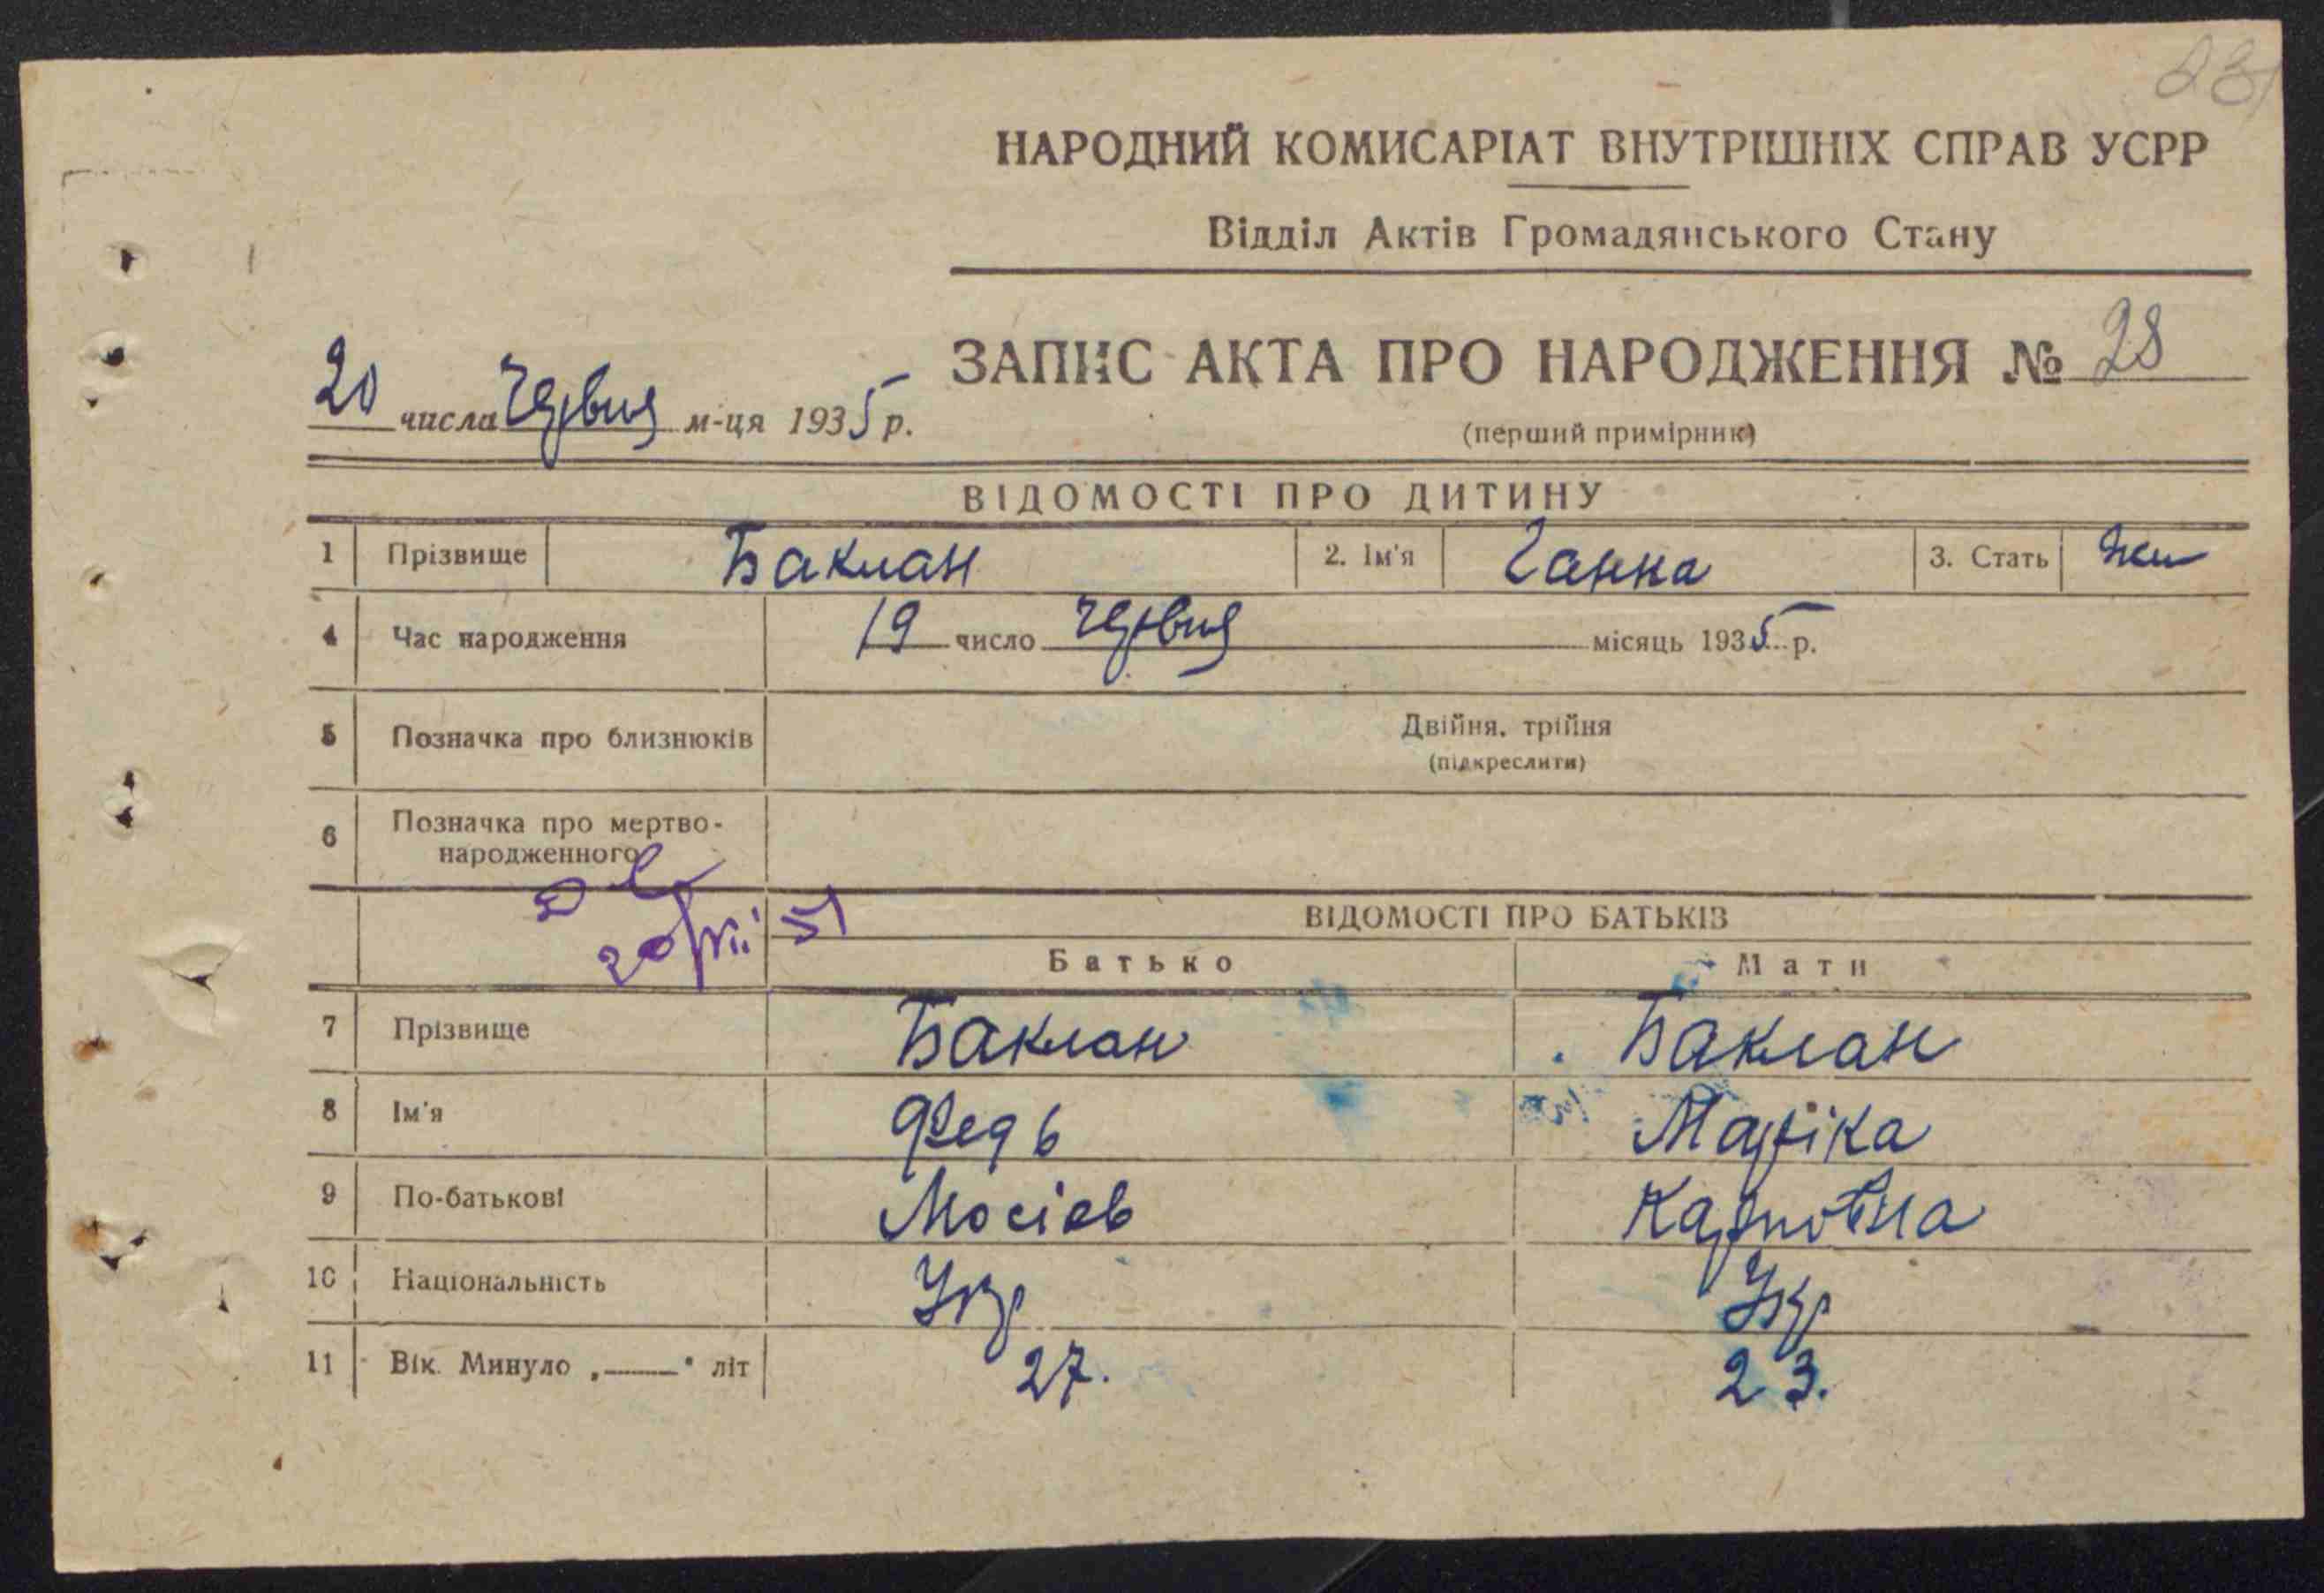 НАРОДНИЙ КОМИСАРІАТ ВНУТРІШНІХ СПРАВ УСРР
Відділ Актів Громадянського Стану
ЗАПИС АКТА ПРО НАРОДЖЕННЯ № 28
20 числа Червня м-ця 1935 р.
(перший примірник)
ВІДОМОСТІ ПРО ДИТИНУ
1 Прізвище Баклан 2. Ім'я Ганна 3. Стать жи
4 Час народження 19 число червня місяць 1935 р.
5 Позначка про близнюків Двійня, трійня
(підкреслити)
6 Позначка про мертво-
народженного
20/XII 51
ВІДОМОСТІ ПРО БАТЬКІВ
Батько Мати
7 Прізвище Баклан Баклан
8 Ім'я Федь Маріка
9 По-батькові Мосієв Карповна
10 Національність Укр Укр
11 Вік. Минуло „——" літ 27. 23.